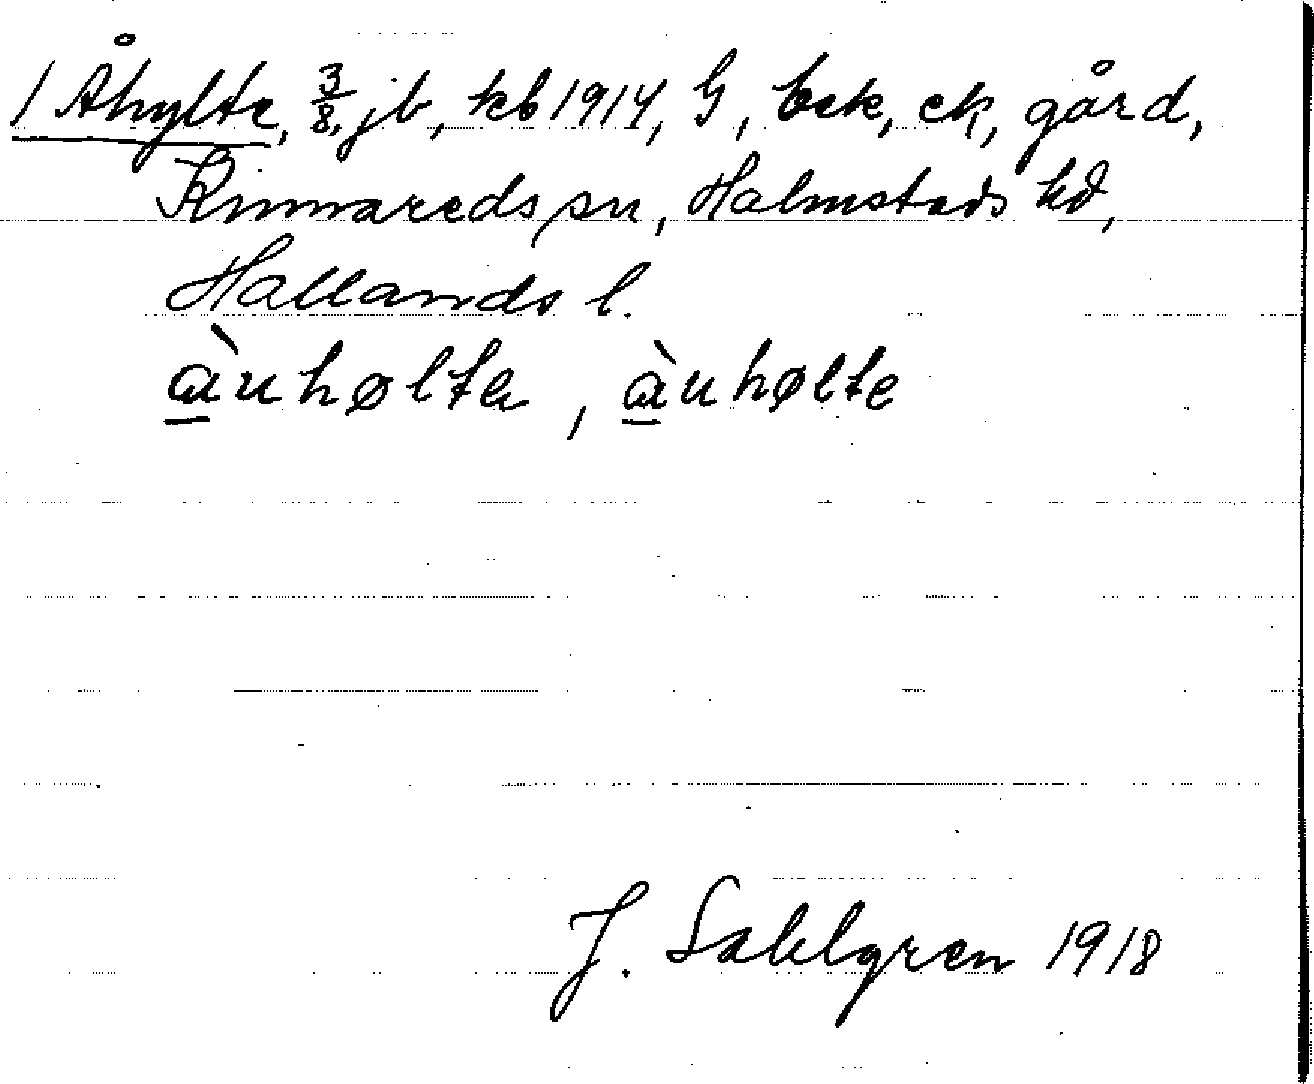 1 Åhylte, 3/8, jb, kb 1914, G, bek, ek, gård,
Kinnareds sn, Halmstads hd,
Hallands l.
à̱uhølta, à̱uhølte
J. Sahlgren 1918